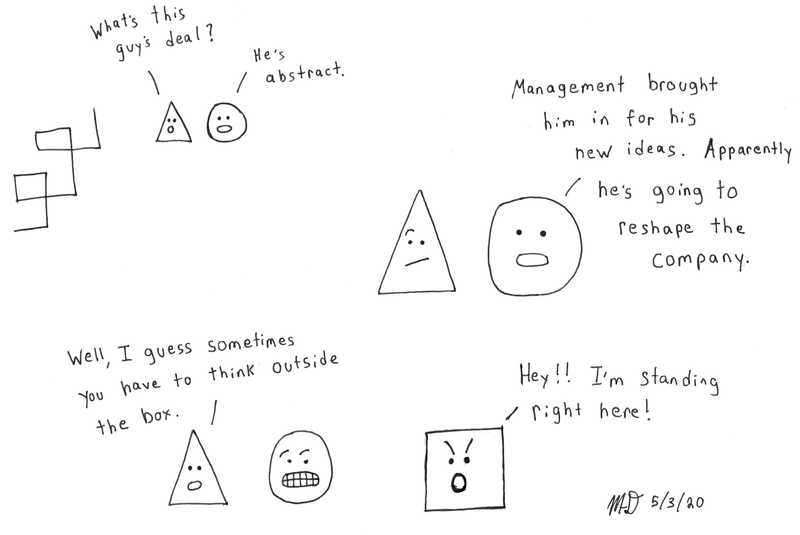 What's this
guy's deal?
He's
abstract.
Management brought
him in for his
new ideas. Apparently
he's going to
reshape the
company.
Well, I guess sometimes
you have to think outside
the box.
Hey!! I'm standing
right here!
MD 5/3/20